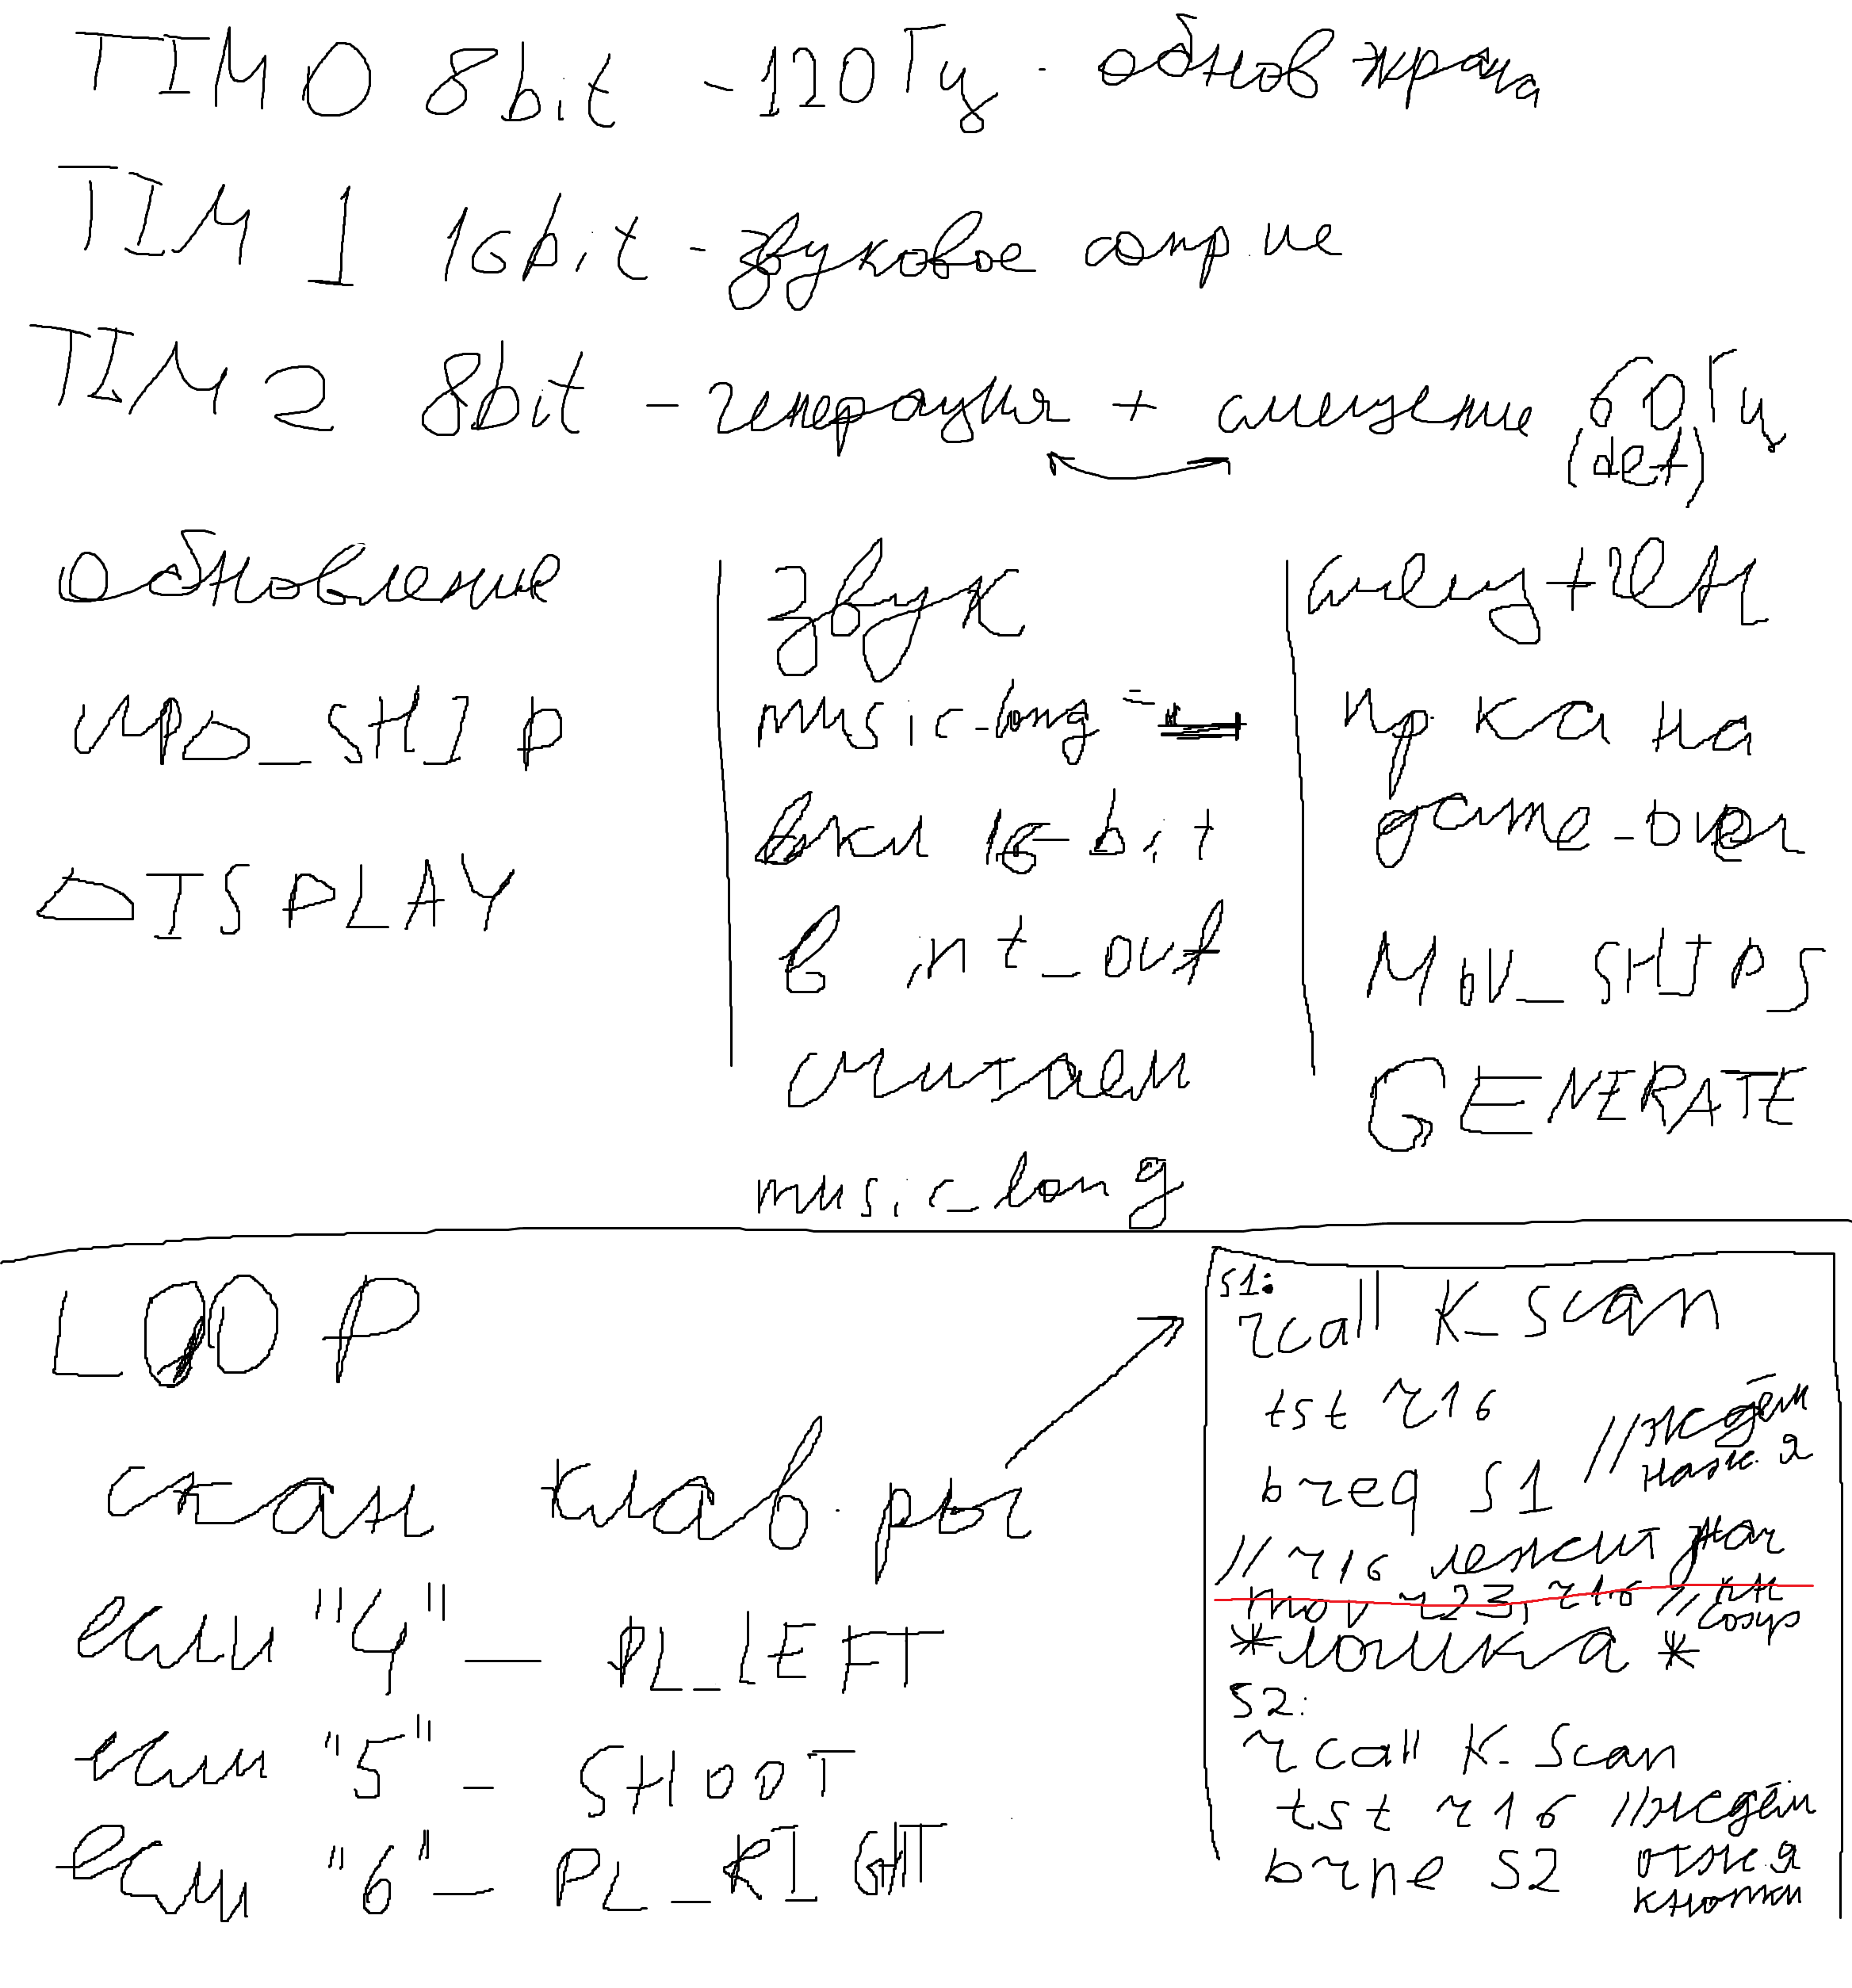 TIM 0 8bit - 120 Гц - обнов экрана
TIM 1 16bit - звуковое сопр.ие
TIM 2 8bit - генерация + смещение 60 Гц
(def)
обновление
UPD_SHIP
DISPLAY
звук
music_long =
вкл 16-bit
в int_out
считаем
music_long
смещ + ген
пр.ка на
game_over
MOV_SHIPS
GENERATE
LOOP
скан клав.ры
если "4" — PL_LEFT
если "5" - SHOOT
если "6" — PL_RIGHT
S1:
rcall K_Scan
tst r16
breq S1 //ждём
наж.я
//r16 лежит знач
mov r23, r16 // кн
сохр
*логика*
S2:
rcall K_Scan
tst r16 //ждём
brne S2 отж.я
кнопки